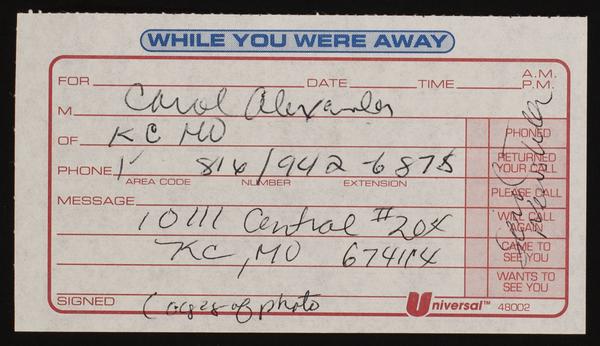 WHILE YOU WERE AWAY
FOR DATE TIME A.M. P.M.
M Carol Alexander
OF KC MO
PHONE 816/942-6875
AREA CODE NUMBER EXTENSION
MESSAGE 10111 Central #204
KC, MO 674114
SIGNED (copies of photo
PHONED
RETURNED YOUR CALL
PLEASE CALL
WILL CALL AGAIN
CAME TO SEE YOU
WANTS TO SEE YOU
Universal™ 48002